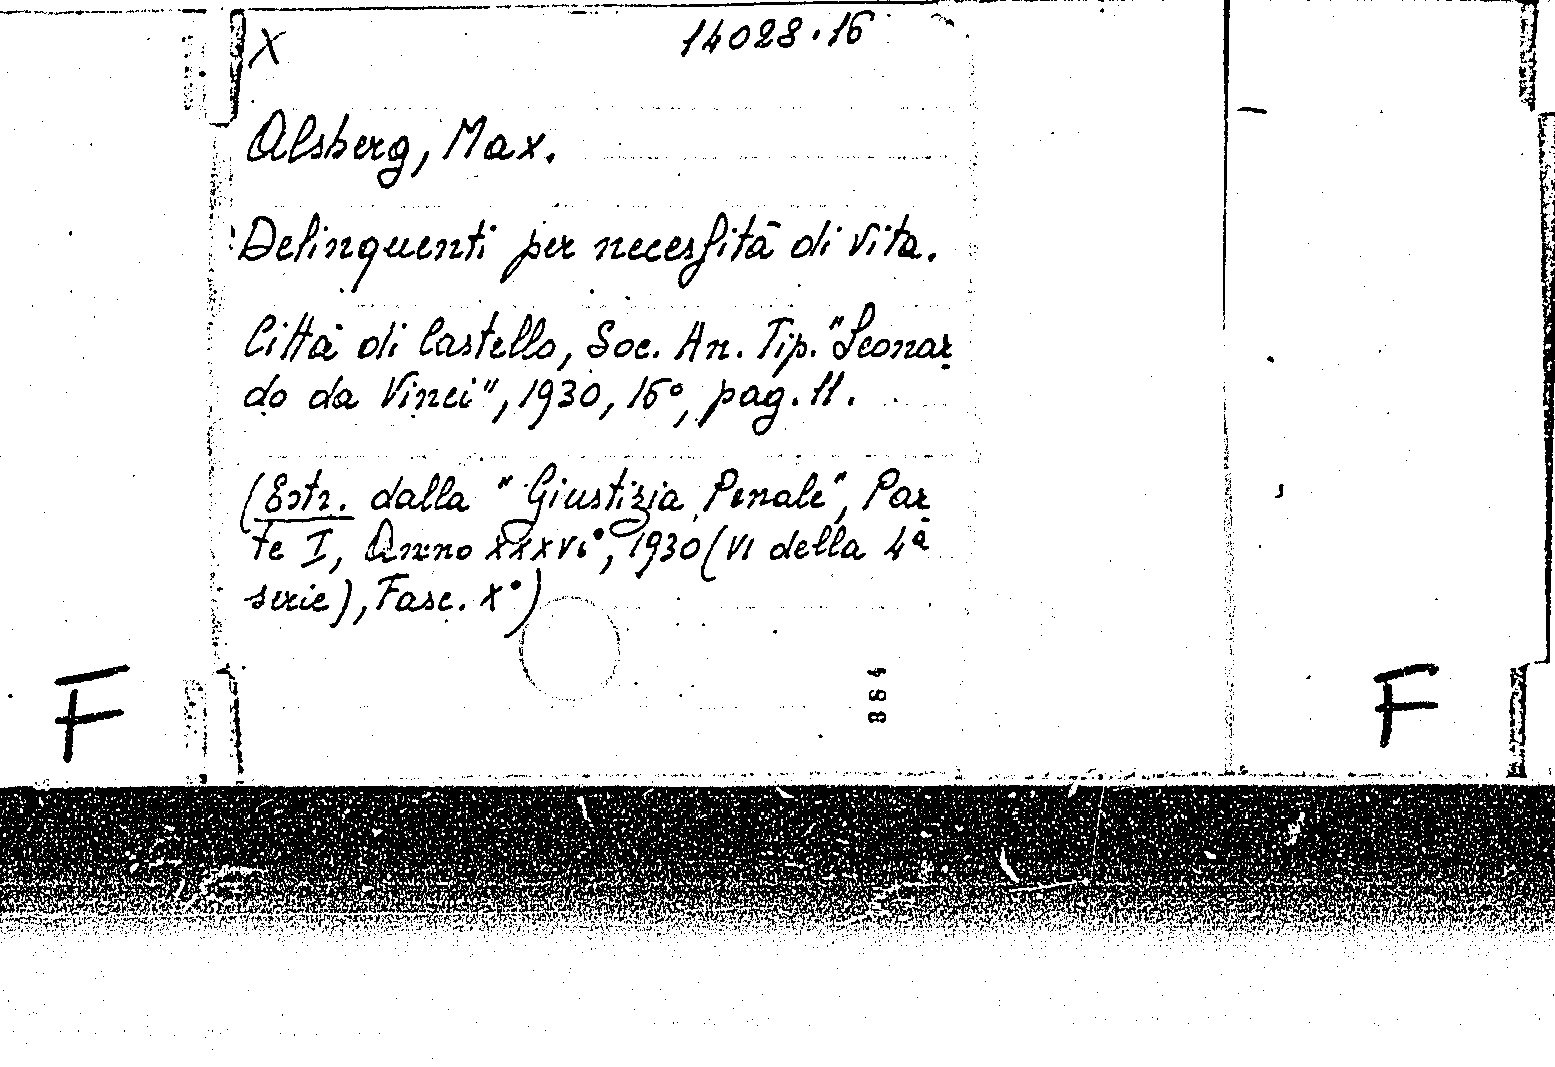 X 14028.16
Alsberg, Max.
Delinquenti per necessità di vita.
Città di Castello, Soc. An. Tip. "Leonar
do da Vinci", 1930, 16°, pag. 11.
(Estr. dalla "Giustizia Penale", Par
te I, Anno XXXVI°, 1930 (VI della 4ª
serie), Fasc. X°)
F
F